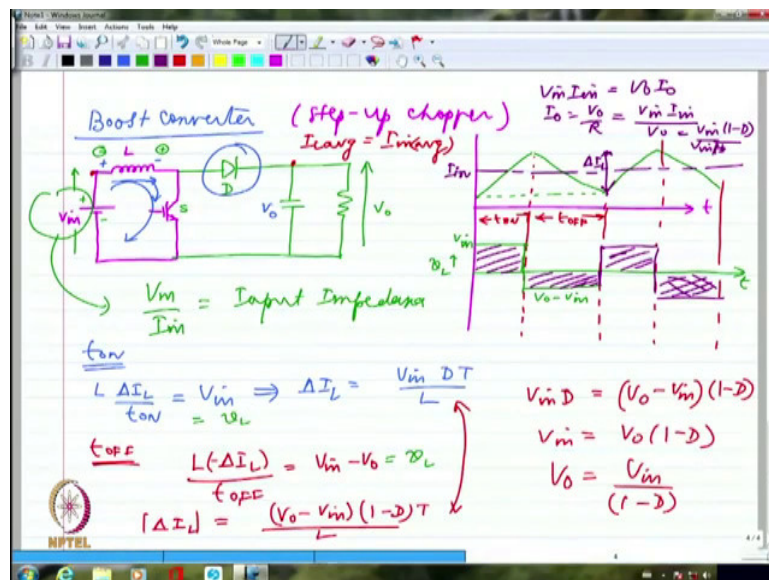 Note1 - Windows Journal
File Edit View Insert Actions Tools Help
Whole Page
B I
Boost Converter (Step-up chopper)
V_in I_in = V_0 I_0
I_0 = V_0/R = V_in I_in/V_0 = V_in (1-D)
I_Lavg = I_in(avg)
+ L -
D
S
V_in
+
-
V_0
V_0
I_in
ΔI_L
t
t_ON
t_OFF
V_in
v_L ↑
V_0 - V_in
t
V_in/I_in = Input Impedance
t_ON
L ΔI_L/t_ON = V_in ⇒ ΔI_L = V_in DT/L
= v_L
t_OFF
L(-ΔI_L)/t_OFF = V_in - V_0 = v_L
|ΔI_L| = (V_0 - V_in)(1-D)T/L
V_in D = (V_0 - V_in)(1-D)
V_in = V_0 (1-D)
V_0 = V_in/(1-D)
NPTEL
4/4